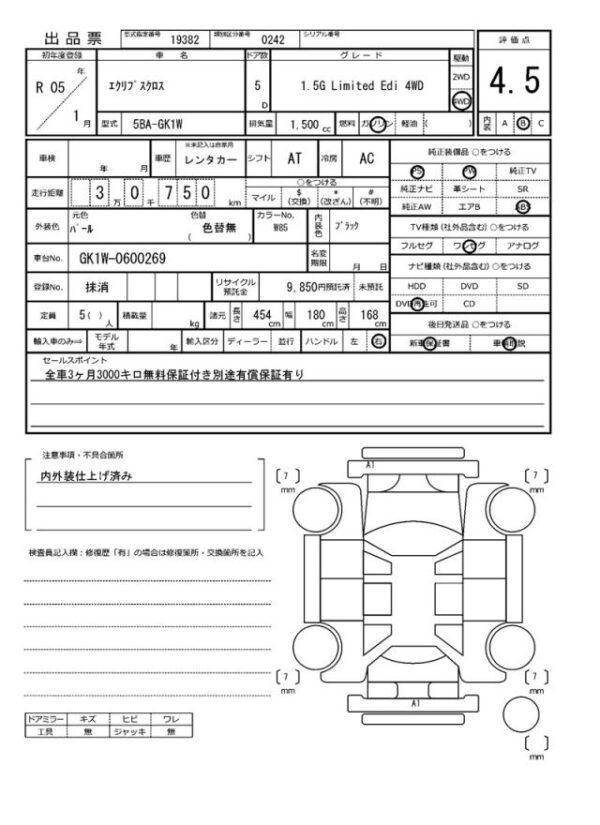 出品票 型式指定番号 19382 類別区分番号 0242 シリアル番号
評価点
4.5
内装 A B C
初年度登録 車名 ドア数 グレード 駆動
R 05 年 1 月
エクリプスクロス 5 D 1.5G Limited Edi 4WD 2WD 4WD
型式 5BA-GK1W 排気量 1,500 cc 燃料 ガソリン 軽油 ( )
車検 年 月 車歴 ※未記入は自家用 レンタカー シフト AT 冷房 AC
純正装備品 ○をつける
PS PW 純正TV
純正ナビ 革シート SR
純正AW エアB ABS
走行距離 3万0千750 km ○をつける
マイル $(交換) *(改ざん) #(不明)
外装色 元色 パール 色替 色替無 ( ) カラーNo. W85 内装色 ブラック
TV種類(社外品含む)○をつける
フルセグ ワンセグ アナログ
車台No. GK1W-0600269 名変期限 月 日
ナビ種類(社外品含む)○をつける
HDD DVD SD
DVD再生可 CD
登録No. 抹消 リサイクル預託金 9,850円預託済 未預託
定員 5( )人 積載量 kg 諸元 長さ 454 cm 幅 180 cm 高さ 168 cm
後日発送品 ○をつける
新車保証書 車輌取説
輸入車のみ⇒ モデル年式 年 輸入区分 ディーラー 並行 ハンドル 左 右
セールスポイント
全車3ヶ月3000キロ無料保証付き別途有償保証有り
注意事項・不具合箇所
内外装仕上げ済み
検査員記入欄：修復歴「有」の場合は修復箇所・交換箇所を記入
A1
7 mm
7 mm
7 mm
7 mm
A1
mm
ドアミラー キズ ヒビ ワレ
工具 無 ジャッキ 無